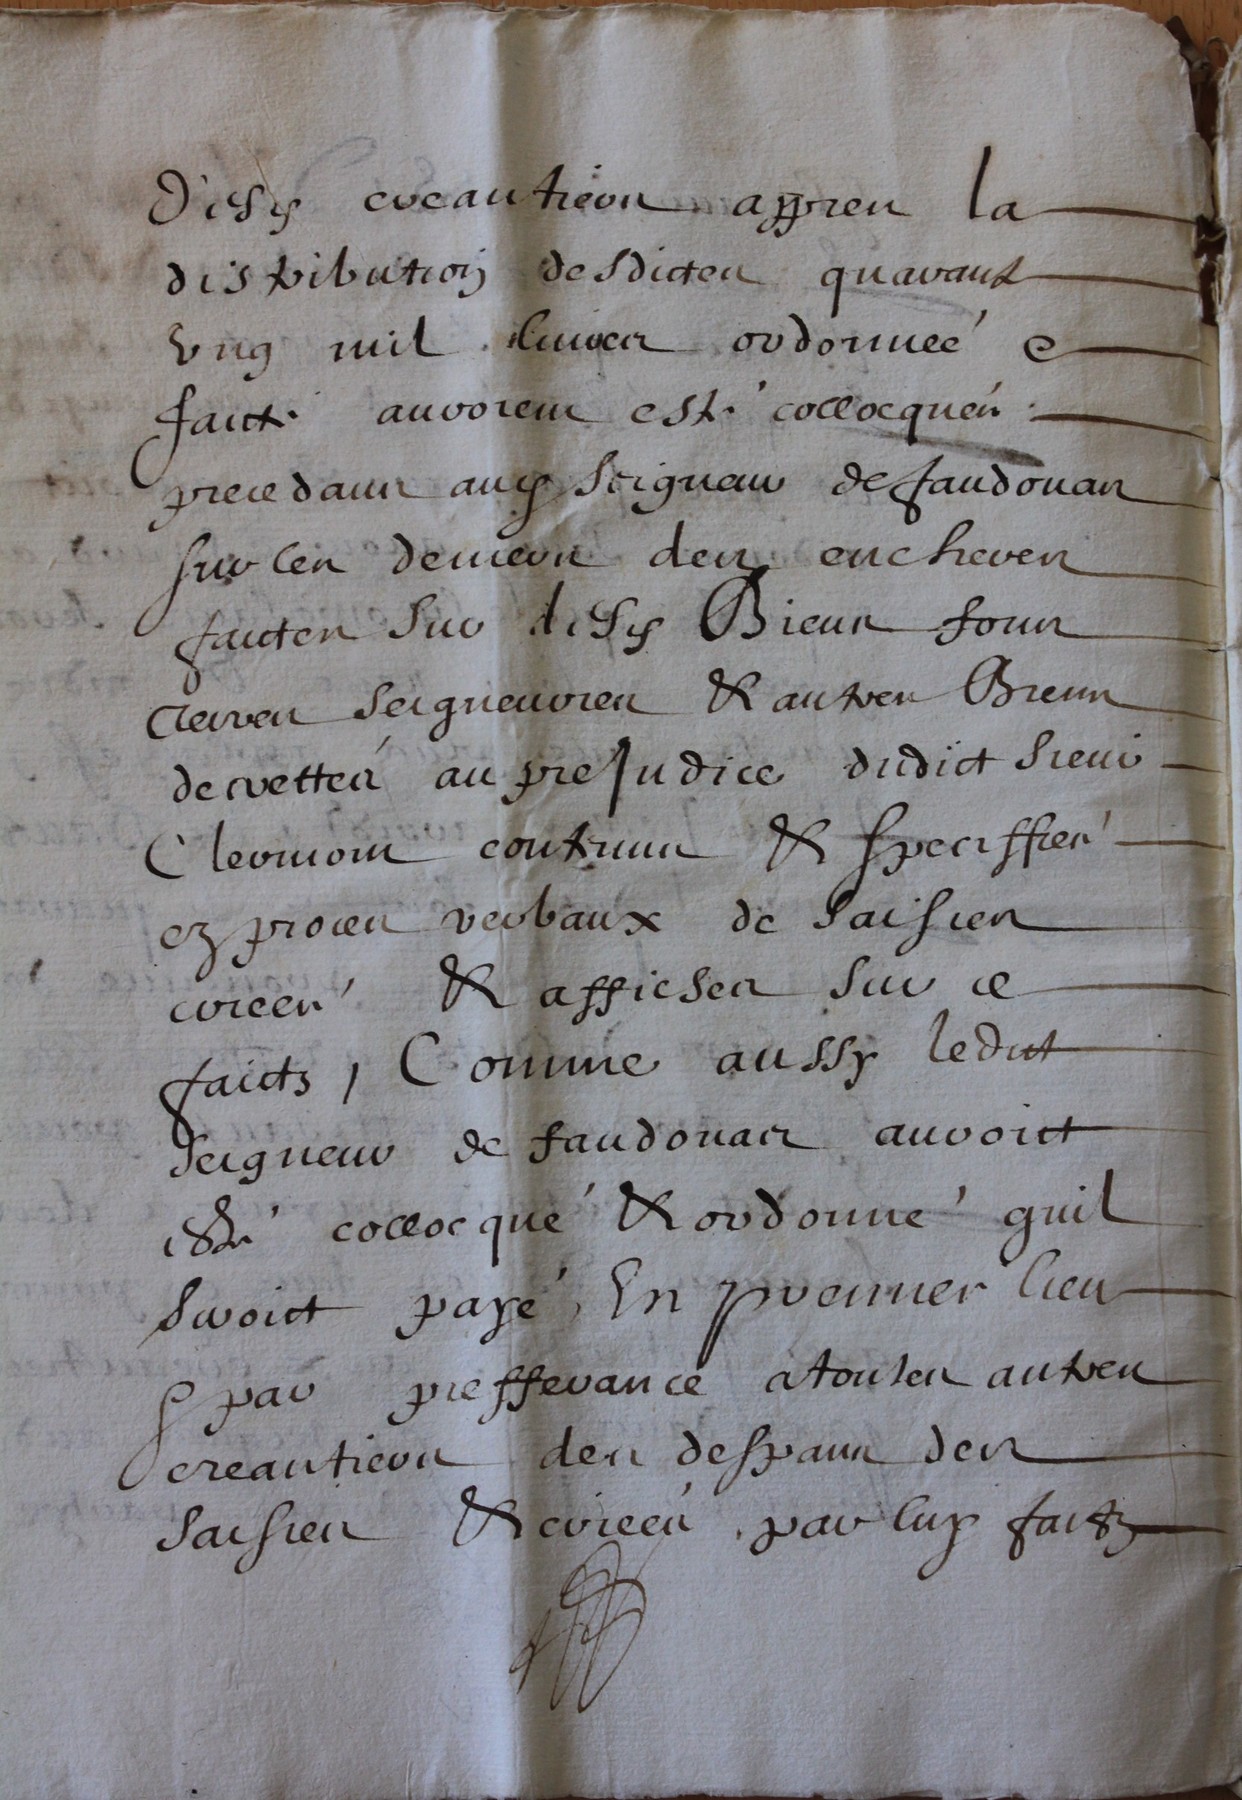 d'iceux creantiers appres la
distribution desdictes quarante
ung mil livres ordonneé e
faict auroient esté collocqués
precedans aud seigneur de faudouas
sur les deniers des encheres
faictes sur d'iceux Biens fons
terres seigneuries & autres Biens
decrettés au preJudice dudict sieur
Clermont contenus & speciffiés
ez proces verbaux de saisies
criees & affiches sur ce
faicts, Comme aussy ledict
seigneur de faudouas auroict
esté collocqué & ordonné quil
seroict payé En premier lieu
& par prefferance a toutes autres
creantiers des despans des
saisies & criées par luy faictz